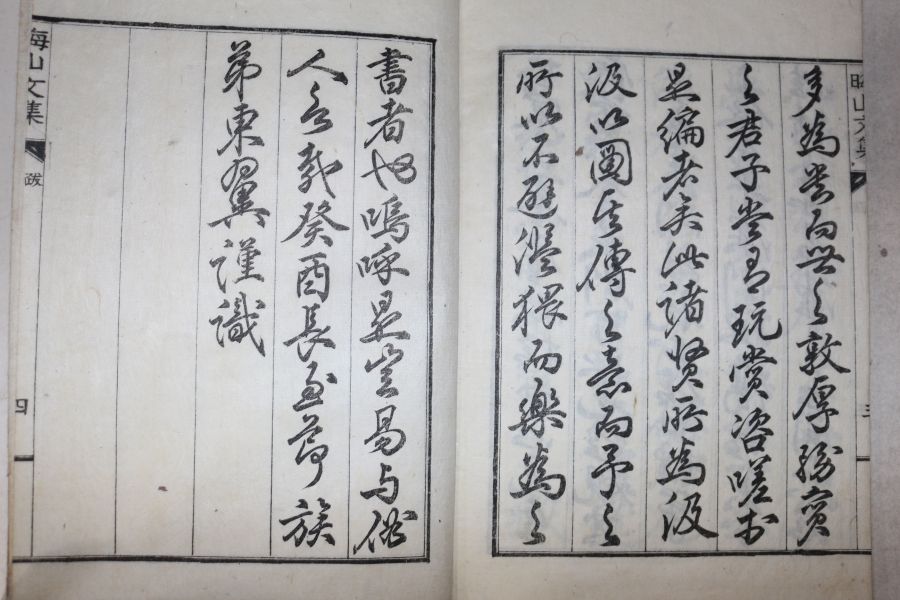 晦山文集
三
多為貴而世之敦厚務實
之君子當有玩賞咨嗟於
是編者矣此諸賢所為汲
汲以圖其傳之意而予之
所以不避濫猥而樂為之
書者也嗚呼是豈易與俗
人言哉癸酉長至節族
弟東翼謹識
山文集
跋
四